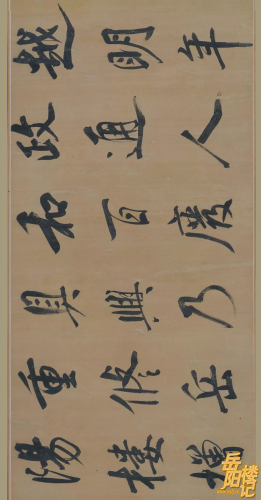 越明年
政通人
和百廢
具興乃
重修岳
陽樓增
岳阳楼记